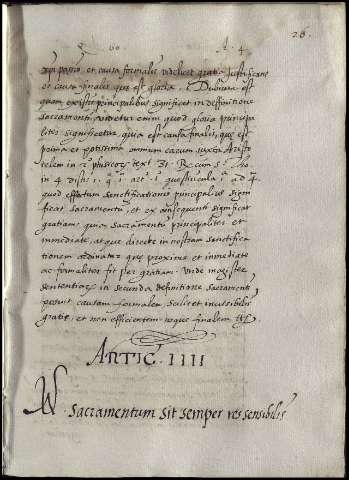 q. 60. A. 4. 26.
xpi passio, et causa formalis videlicet gratia justificans
et causa finalis que est gloria. Dubium est
quam ex istis principalibus significet in deffinitione
sacramenti, videtur enim quod gloria principa
liter significetur, quia est causa finalis, que est
prima et potissima omnium causarum juxta Aristo
telem in 2 phisicor text 31. R. cum s. tho
in 4 dist. 1 q. 1 art. 1 questiuncula 1 ad 4
quod effectum sanctificationis principalius signi
ficat sacramentum, et ex consequenti significat
gratiam, quia sacramentum principaliter et
immediate, atque directe in nostram sanctifica
tionem ordinatur, que proxime et inmediate
ac formaliter fit per gratiam. Unde magister
sententiar in secunda definitione sacramenti
posuit causam formalem, scilicet invissibilis
gratie, et non efficientem neque finalem
ARTIC. IIII
Sacramentum sit semper res sensibilis